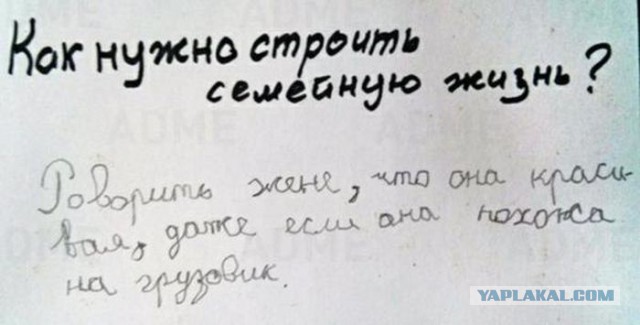 Как нужно строить
семейную жизнь?
Говорить жене, что она краси-
вая, даже если она похожа
на грузовик.
ADME
YAPLAKAL.COM